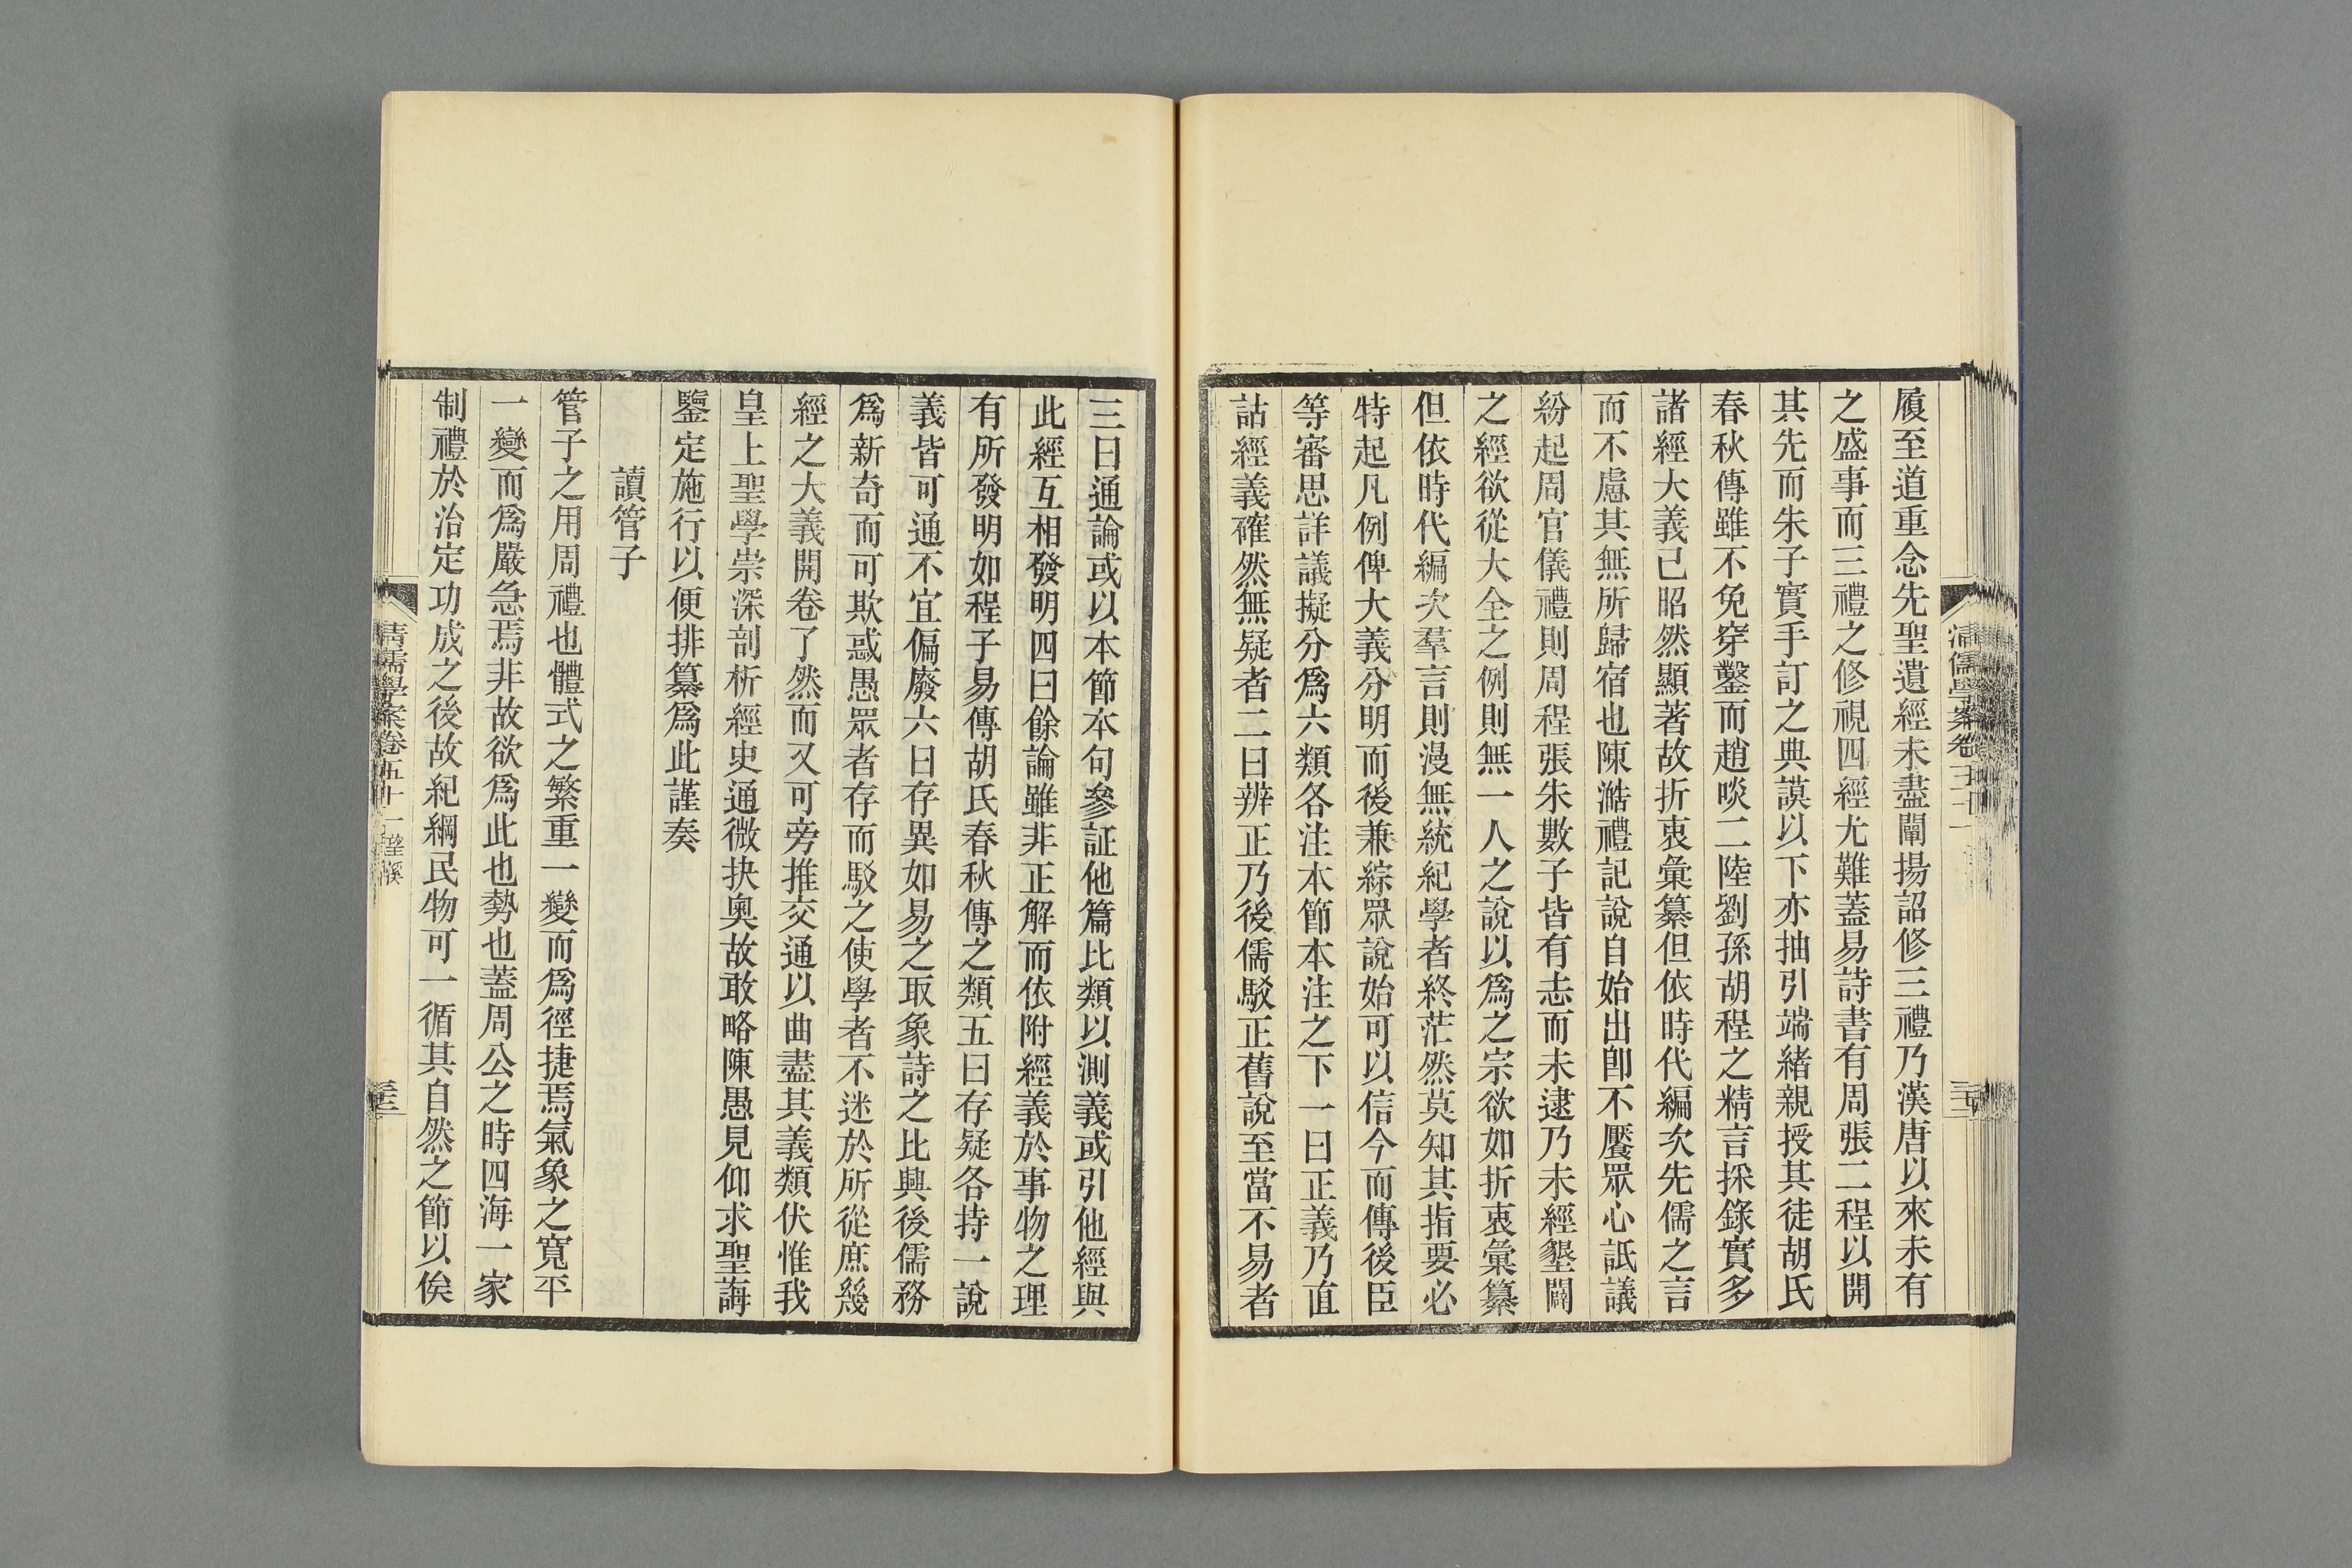 履至道重念先聖遺經未盡闡揚詔修三禮乃漢唐以來未有
之盛事而三禮之修視四經尤難蓋易詩書有周張二程以開
其先而朱子實手訂之典謨以下亦抽引端緒親授其徒胡氏
春秋傳雖不免穿鑿而趙啖二陸劉孫胡程之精言採錄實多
諸經大義已昭然顯著故折衷彙纂但依時代編次先儒之言
而不慮其無所歸宿也陳澔禮記說自始出卽不饜眾心詆議
紛起周官儀禮則周程張朱數子皆有志而未逮乃未經墾闢
之經欲從大全之例則無一人之說以爲之宗欲如折衷彙纂
但依時代編次羣言則漫無統紀學者終茫然莫知其指要必
特起凡例俾大義分明而後兼綜眾說始可以信今而傳後臣
等審思詳議擬分爲六類各注本節本注之下一曰正義乃直
詁經義確然無疑者二曰辨正乃後儒駁正舊說至當不易者
三曰通論或以本節本句參証他篇比類以測義或引他經與
此經互相發明四曰餘論雖非正解而依附經義於事物之理
有所發明如程子易傳胡氏春秋傳之類五曰存疑各持一說
義皆可通不宜偏廢六曰存異如易之取象詩之比興後儒務
爲新奇而可欺惑愚眾者存而駁之使學者不迷於所從庶幾
經之大義開卷了然而又可旁推交通以曲盡其義類伏惟我
皇上聖學崇深剖析經史通微抉奧故敢略陳愚見仰求聖誨
鑒定施行以便排纂爲此謹奏
讀管子
管子之用周禮也體式之繁重一變而爲徑捷焉氣象之寬平
一變而爲嚴急焉非故欲爲此也勢也蓋周公之時四海一家
制禮於治定功成之後故紀綱民物可一循其自然之節以俟
清儒學案卷五十一 望溪
三三